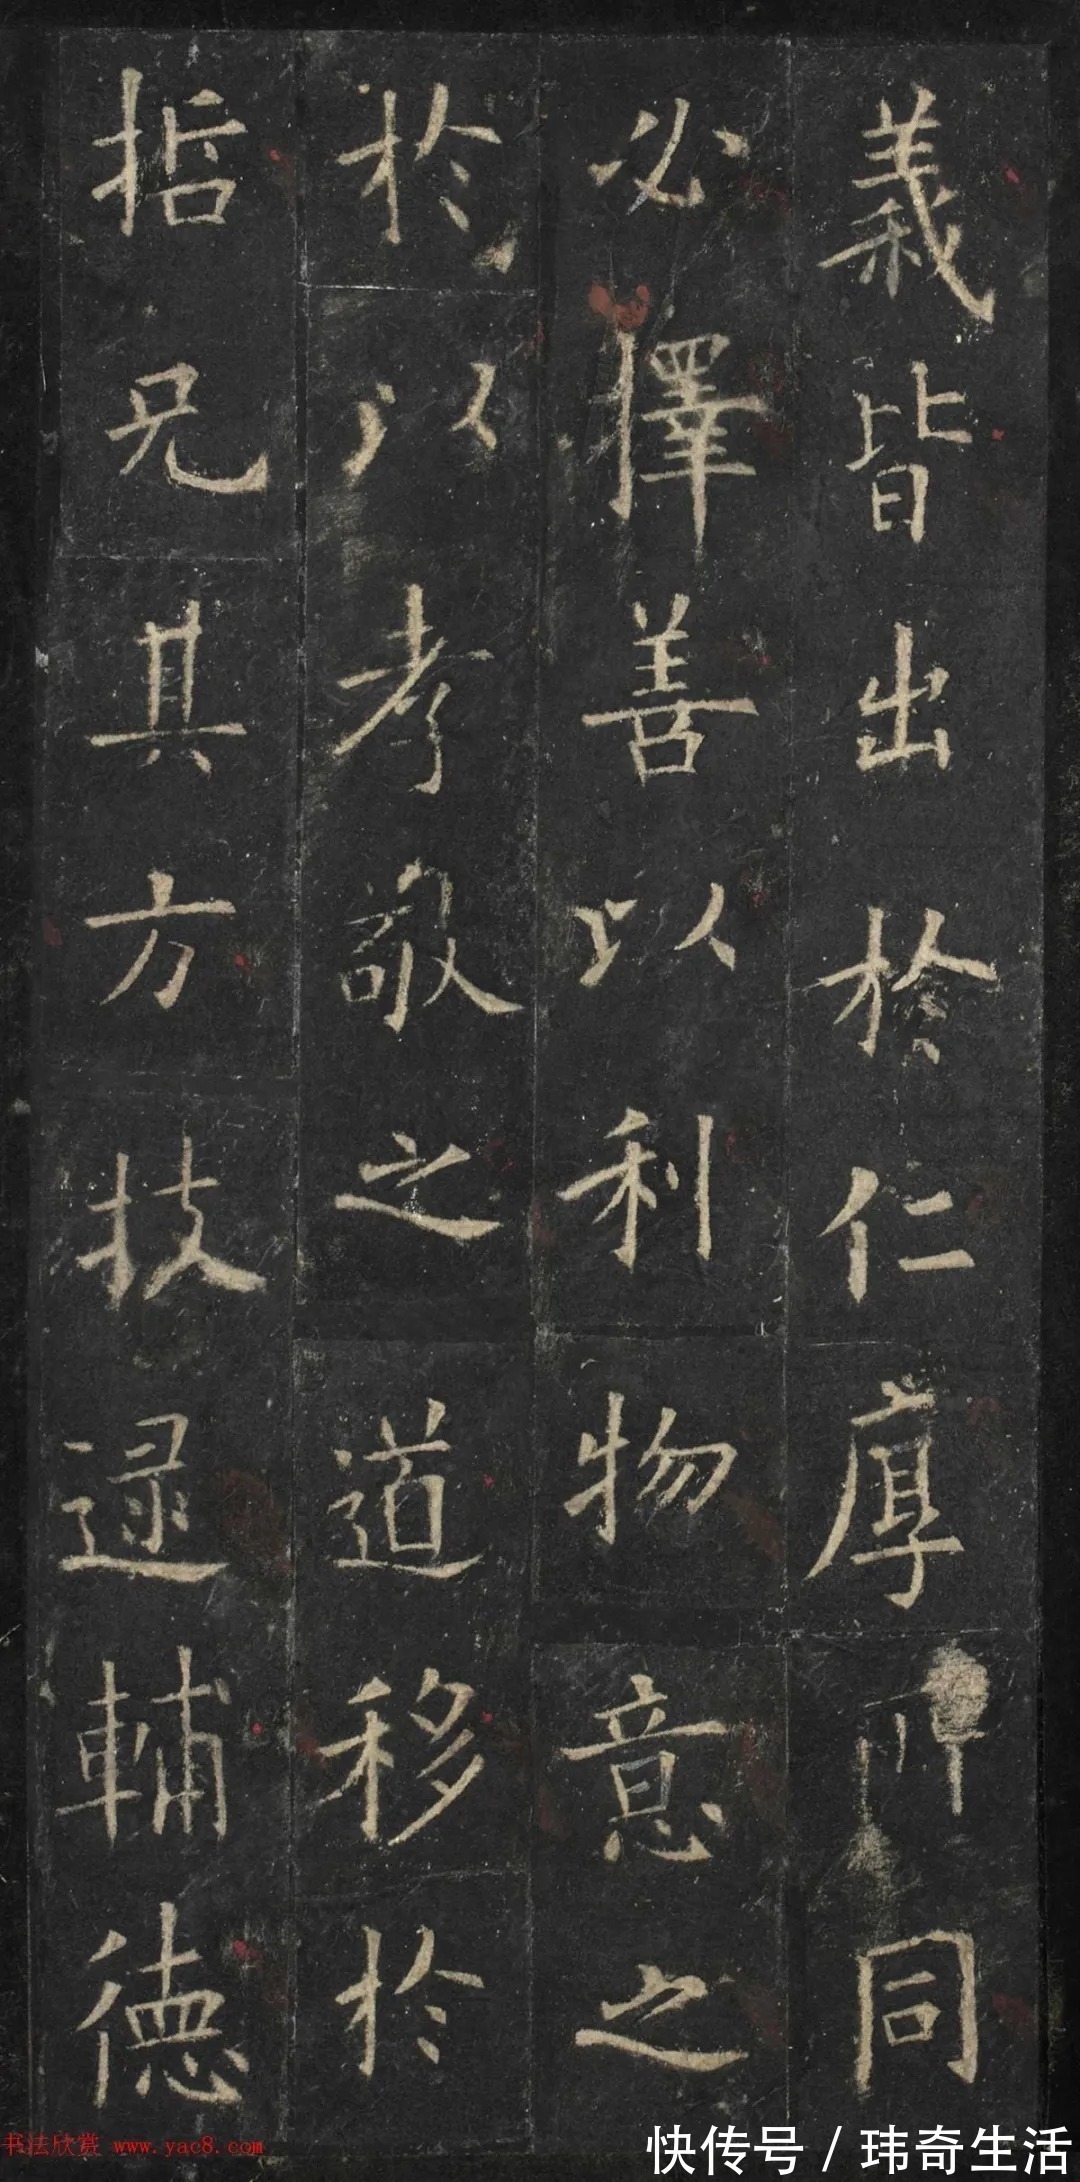 義皆出於仁厚所同
必擇善以利物意之
於以孝敬之道移於
哲兄其方技逯輔德
书法欣赏 www.yac8.com
快传号 / 玮奇生活